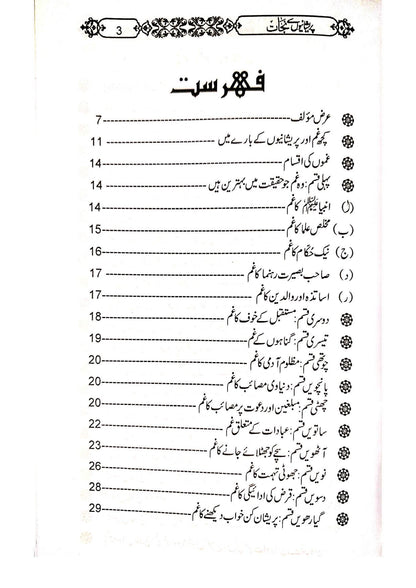 پریشانیوں سے نجات 3
فہرست
عرض مؤلف 7
کچھ غم اور پریشانیوں کے بارے میں 11
غموں کی اقسام 14
پہلی قسم: وہ غم جو حقیقت میں بہترین ہیں 14
(ا) انبیاء کا غم 14
(ب) مخلص علما کا غم 15
(ج) نیک حکام کا غم 16
(د) صاحب بصیرت رہنما کا غم 17
(ر) اساتذہ اور والدین کا غم 17
دوسری قسم: مستقبل کے خوف کا غم 18
تیسری قسم: گناہوں کے غم 19
چوتھی قسم: مظلوم آدمی کا غم 20
پانچویں قسم: دنیاوی مصائب کا غم 20
چھٹی قسم: مبلغین اور دعوت پر مصائب کا غم 20
ساتویں قسم: عبادات کے متعلق غم 22
آٹھویں قسم: سچے کو جھٹلائے جانے کا غم 23
نویں قسم: جھوٹی تہمت کا غم 26
دسویں قسم: قرض کی ادائیگی کا غم 28
گیارھویں قسم: پریشان کن خواب دیکھنے کا غم 29